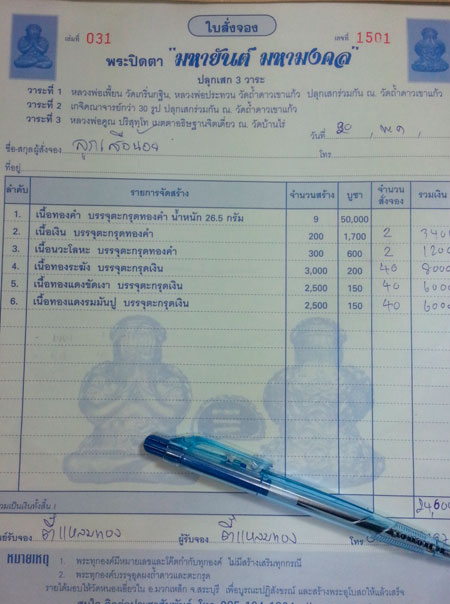 ใบสั่งจอง
เล่มที่ 031
เลขที่ 1501
พระปิดตา "มหายันต์ มหามงคล"
ปลุกเสก 3 วาระ
วาระที่ 1 หลวงพ่อเพี้ยน วัดเกริ่นกฐิน, หลวงพ่อประทวน วัดถ้ำดาวเขาแก้ว ปลุกเสกร่วมกัน ณ. วัดถ้ำดาวเขาแก้ว
วาระที่ 2 เกจิคณาจารย์กว่า 30 รูป ปลุกเสกร่วมกัน ณ. วัดถ้ำดาวเขาแก้ว
วาระที่ 3 หลวงพ่อคูณ ปริสุทฺโท เมตตาอธิษฐานจิตเดี่ยว ณ. วัดบ้านไร่
วันที่ 20 พ.ค.
ชื่อ-สกุลผู้สั่งจอง ลูกเสือนอง
โทร
ที่อยู่
ลำดับ รายการจัดสร้าง จำนวนสร้าง บูชา จำนวนสั่งจอง รวมเงิน
1. เนื้อทองคำ บรรจุตะกรุดทองคำ น้ำหนัก 26.5 กรัม 9 50,000
2. เนื้อเงิน บรรจุตะกรุดทองคำ 200 1,700 2 3400
3. เนื้อนวะโลหะ บรรจุตะกรุดทองคำ 300 600 2 1200
4. เนื้อทองระฆัง บรรจุตะกรุดเงิน 3,000 200 40 8000
5. เนื้อทองแดงขัดเงา บรรจุตะกรุดเงิน 2,500 150 40 6000
6. เนื้อทองแดงรมมันปู บรรจุตะกรุดเงิน 2,500 150 40 6000
รวมเป็นเงินทั้งสิ้น 24,600
ตี๋แหลมทอง ผู้รับจอง ตี๋แหลมทอง โทร
หมายเหตุ 1. พระทุกองค์มีหมายเลขและโค๊ดกำกับทุกองค์ ไม่มีสร้างเสริมทุกกรณี
2. พระทุกองค์บรรจุอุดผงถ้ำดาวและตะกรุด
รายได้มอบให้วัดหนองเอี่ยวใน อ.มวกเหล็ก จ.สระบุรี เพื่อบูรณะปฏิสังขรณ์ และสร้างพระอุโบสถให้แล้วเสร็จ